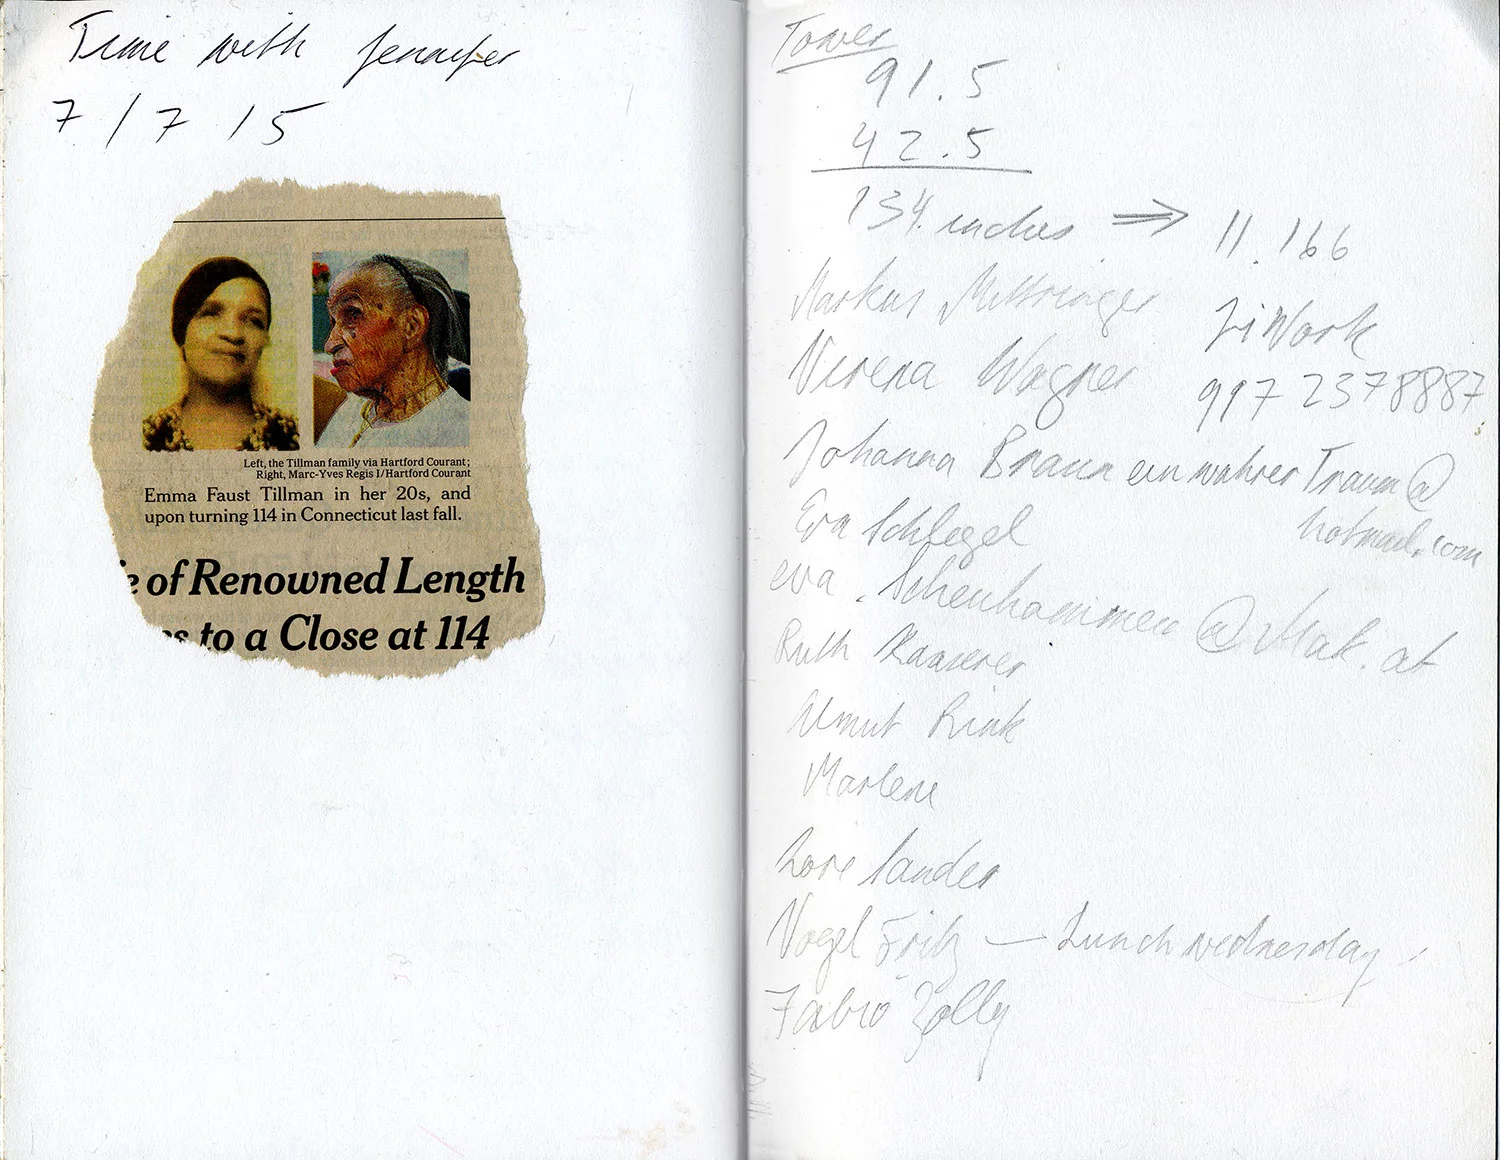 Time with Jennifer
7/7 15
Left, the Tillman family via Hartford Courant;
Right, Marc-Yves Regis I/Hartford Courant
Emma Faust Tillman in her 20s, and
upon turning 114 in Connecticut last fall.
e of Renowned Length
es to a Close at 114
Tower
91.5
42.5
134. inches ⇒ 11.166
Markus Mittringer
Work
Verena Wagner
917 2378887
Johanna Braun ein wahrer Traum@
hotmail.com
Eva Schlegel
eva. @Mak.at
Ruth Kaaserer
Umut
Marlene
Vogel Fritz — Lunch wednesday
Fabio Zolly